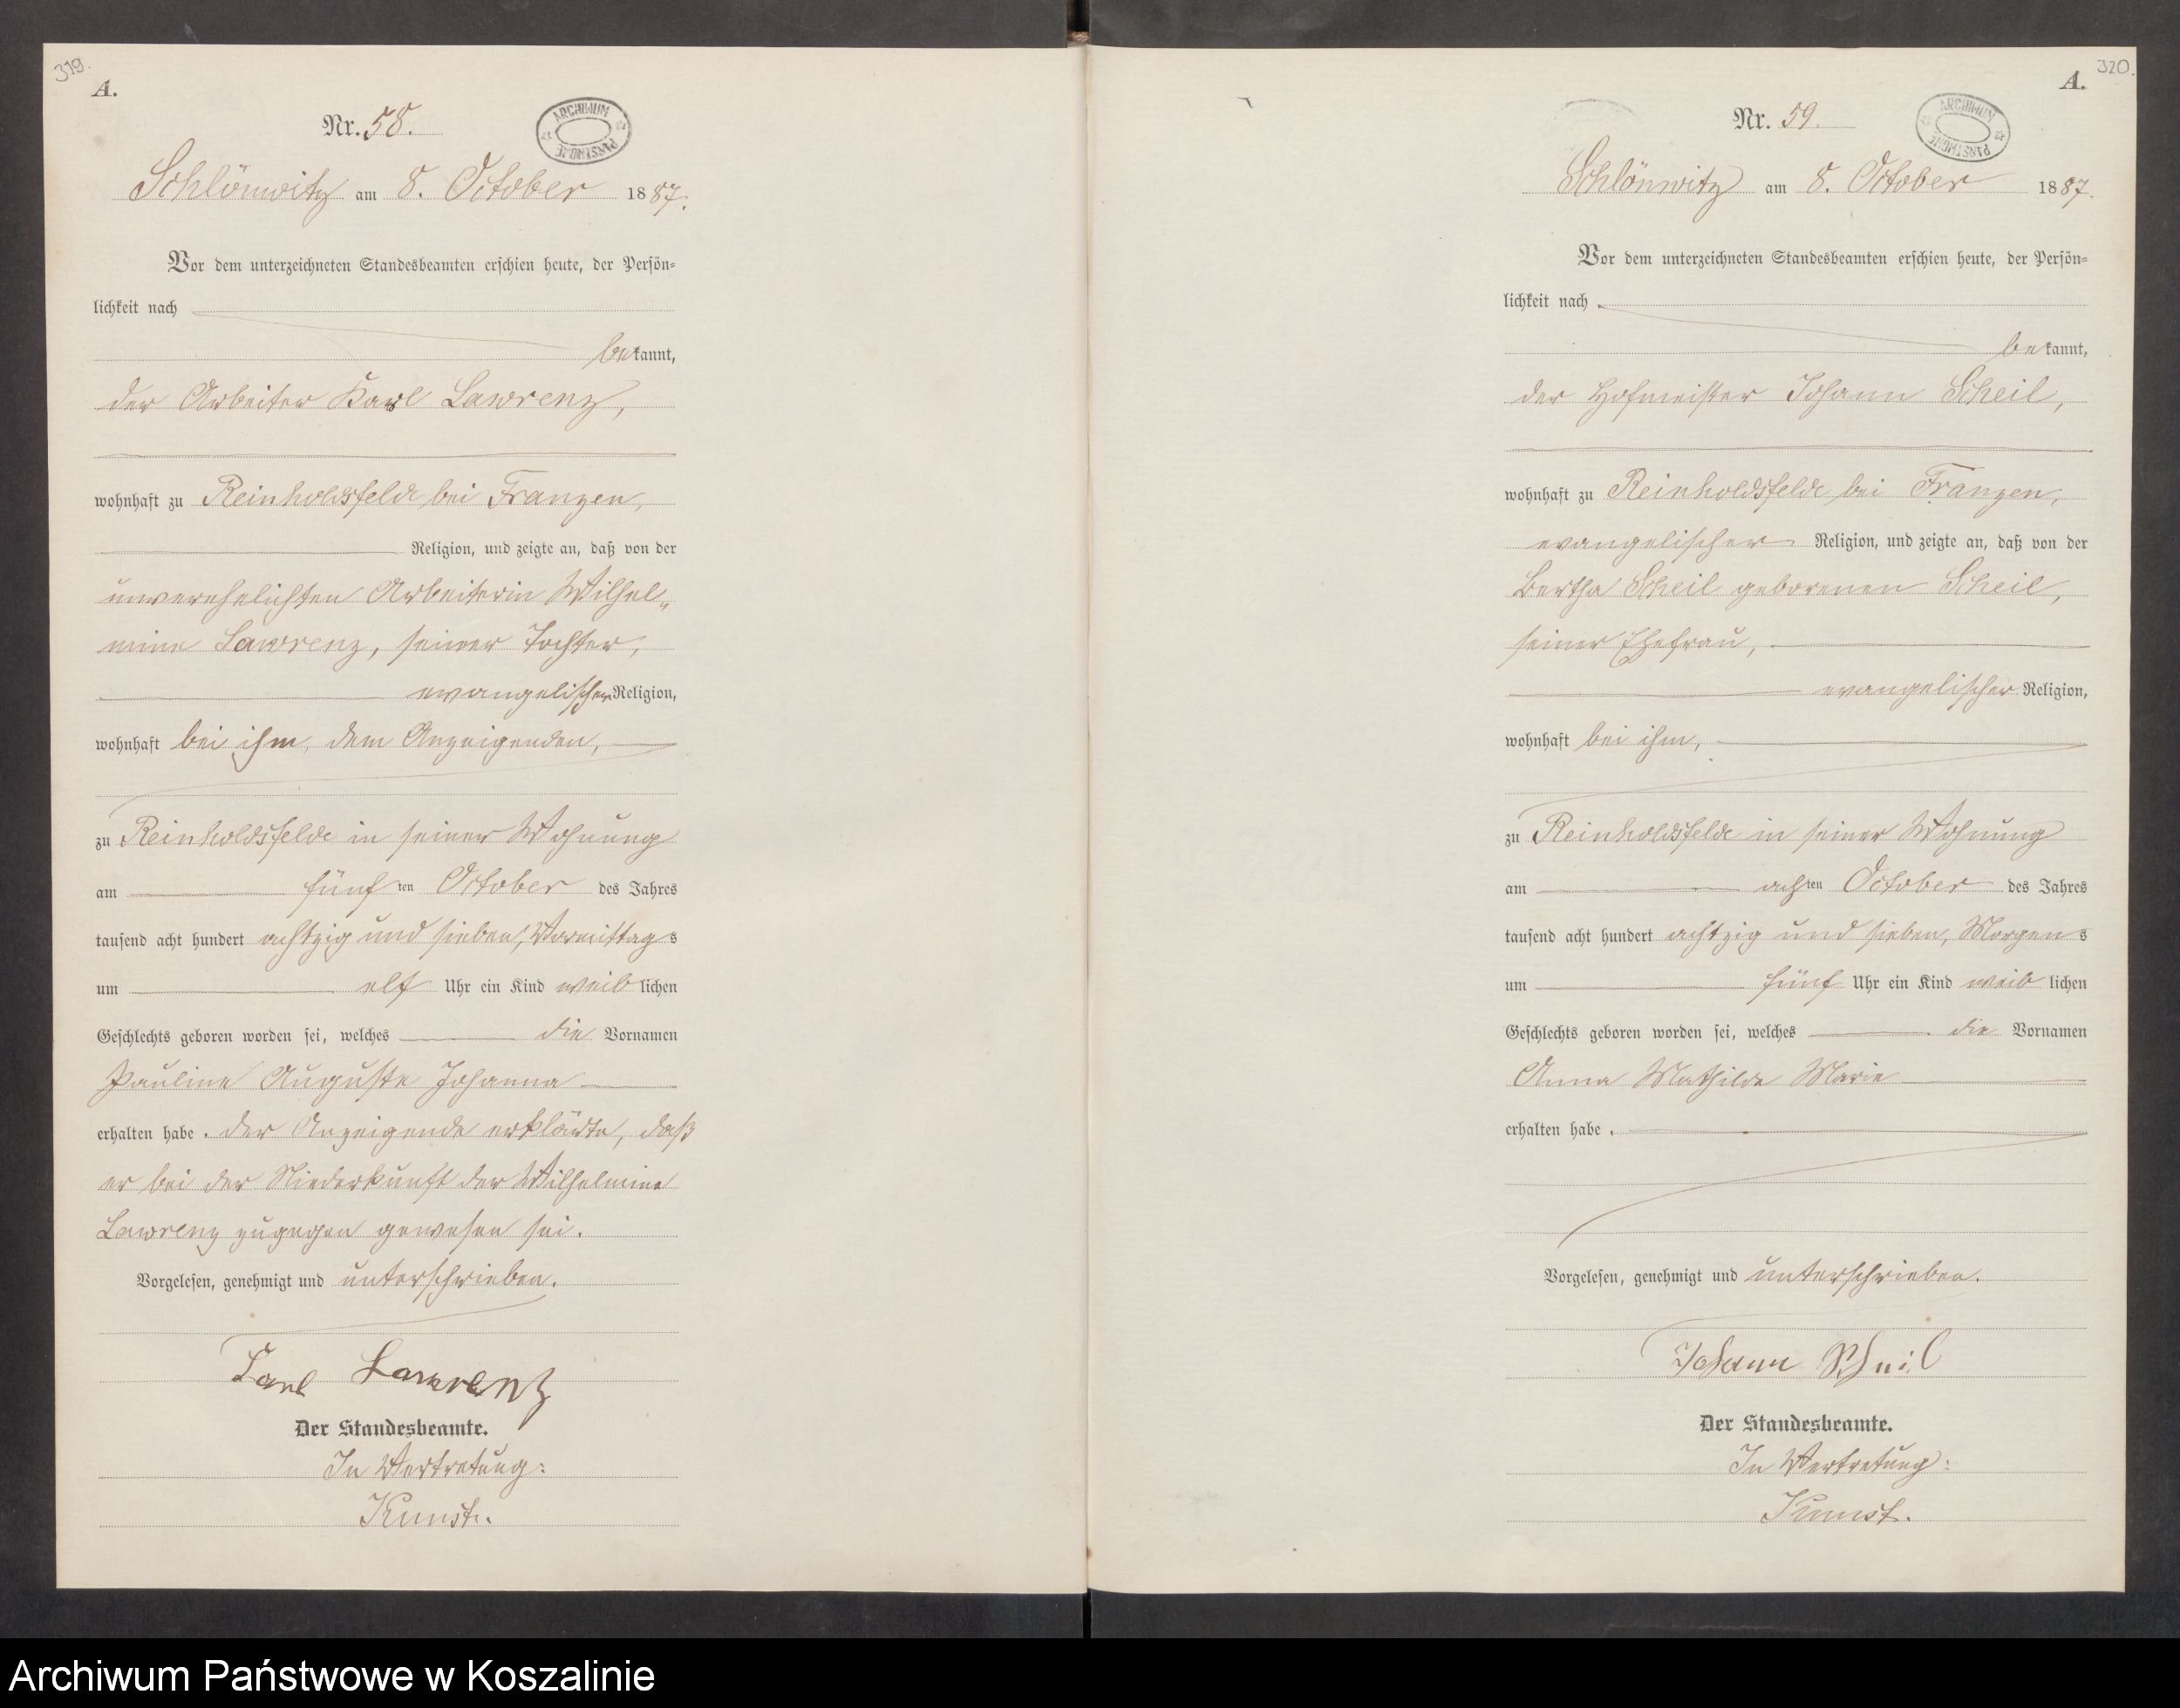 319.
A.
Nr. 58.
ARCHIWUM PAŃSTWOWE
Schlönwitz am 8. October 1887.
Vor dem unterzeichneten Standesbeamten erschien heute, der Persön-
lichkeit nach
bekannt,
der Arbeiter Karl Lawrenz,
wohnhaft zu Reinholdsfelde bei Franzen,
Religion, und zeigte an, daß von der
unverehelichten Arbeiterin Wilhel-
mine Lawrenz, seiner Tochter,
evangelischer Religion,
wohnhaft bei ihm, dem Anzeigenden,
zu Reinholdsfelde in seiner Wohnung
am fünften October des Jahres
tausend acht hundert achtzig und sieben, Vormittags
um elf Uhr ein Kind weiblichen
Geschlechts geboren worden sei, welches die Vornamen
Pauline Auguste Johanna
erhalten habe. Der Anzeigende erklärte, daß
er bei der Niederkunft der Wilhelmine
Lawrenz zugegen gewesen sei.
Vorgelesen, genehmigt und unterschrieben.
Carl Lawrenz
Der Standesbeamte.
In Vertretung:
Kunst.
320.
A.
Nr. 59.
ARCHIWUM PAŃSTWOWE
Schlönwitz am 8. October 1887.
Vor dem unterzeichneten Standesbeamten erschien heute, der Persön-
lichkeit nach
bekannt,
der Hofmeister Johann Scheil,
wohnhaft zu Reinholdsfelde bei Franzen,
evangelischer Religion, und zeigte an, daß von der
Bertha Scheil geborenen Scheil,
seiner Ehefrau,
evangelischer Religion,
wohnhaft bei ihm,
zu Reinholdsfelde in seiner Wohnung
am achten October des Jahres
tausend acht hundert achtzig und sieben, Morgens
um fünf Uhr ein Kind weiblichen
Geschlechts geboren worden sei, welches die Vornamen
Anna Mathilde Marie
erhalten habe.
Vorgelesen, genehmigt und unterschrieben.
Johann Scheil
Der Standesbeamte.
In Vertretung:
Kunst.
Archiwum Państwowe w Koszalinie